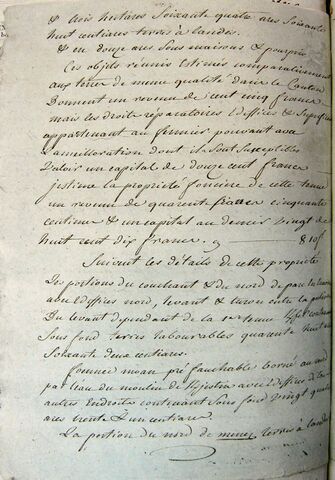 & trois hectares Soixante quatre ares Soixante
huit centiares terres à landes.
& en douze ares Sous maisons & pourpris
Ces objets réunis Estimés comparativement
aux terres de meme qualité dans le Canton
Donnent un revenu de cent cinq francs
mais les droits réparatoires Edifices & Superfices
appartenant au fermier pouvant avec
l'amélioration dont ils Sont Susceptibles
Valoir un capital de douze cent francs
j'estime la propriété foncière de cette tenue
un revenu de quarente francs cinquante
centimes & un capital au denier vingt de
huit cent dix francs. 810 f
Suivent les détails de cette propriété
Les portions du couchant & du nord de
avec Edifices nord, levant &
Du levant dépendant de la tenue
Sous fond terres labourables quarente huit
Soixante deux centiares.
pré fauchable borné au
par l'eau du moulin de avec Edifices
autres Endroits contenant Sous fond vingt quatre
ares trente & un centiares
La portion du nord de menez terres à landes